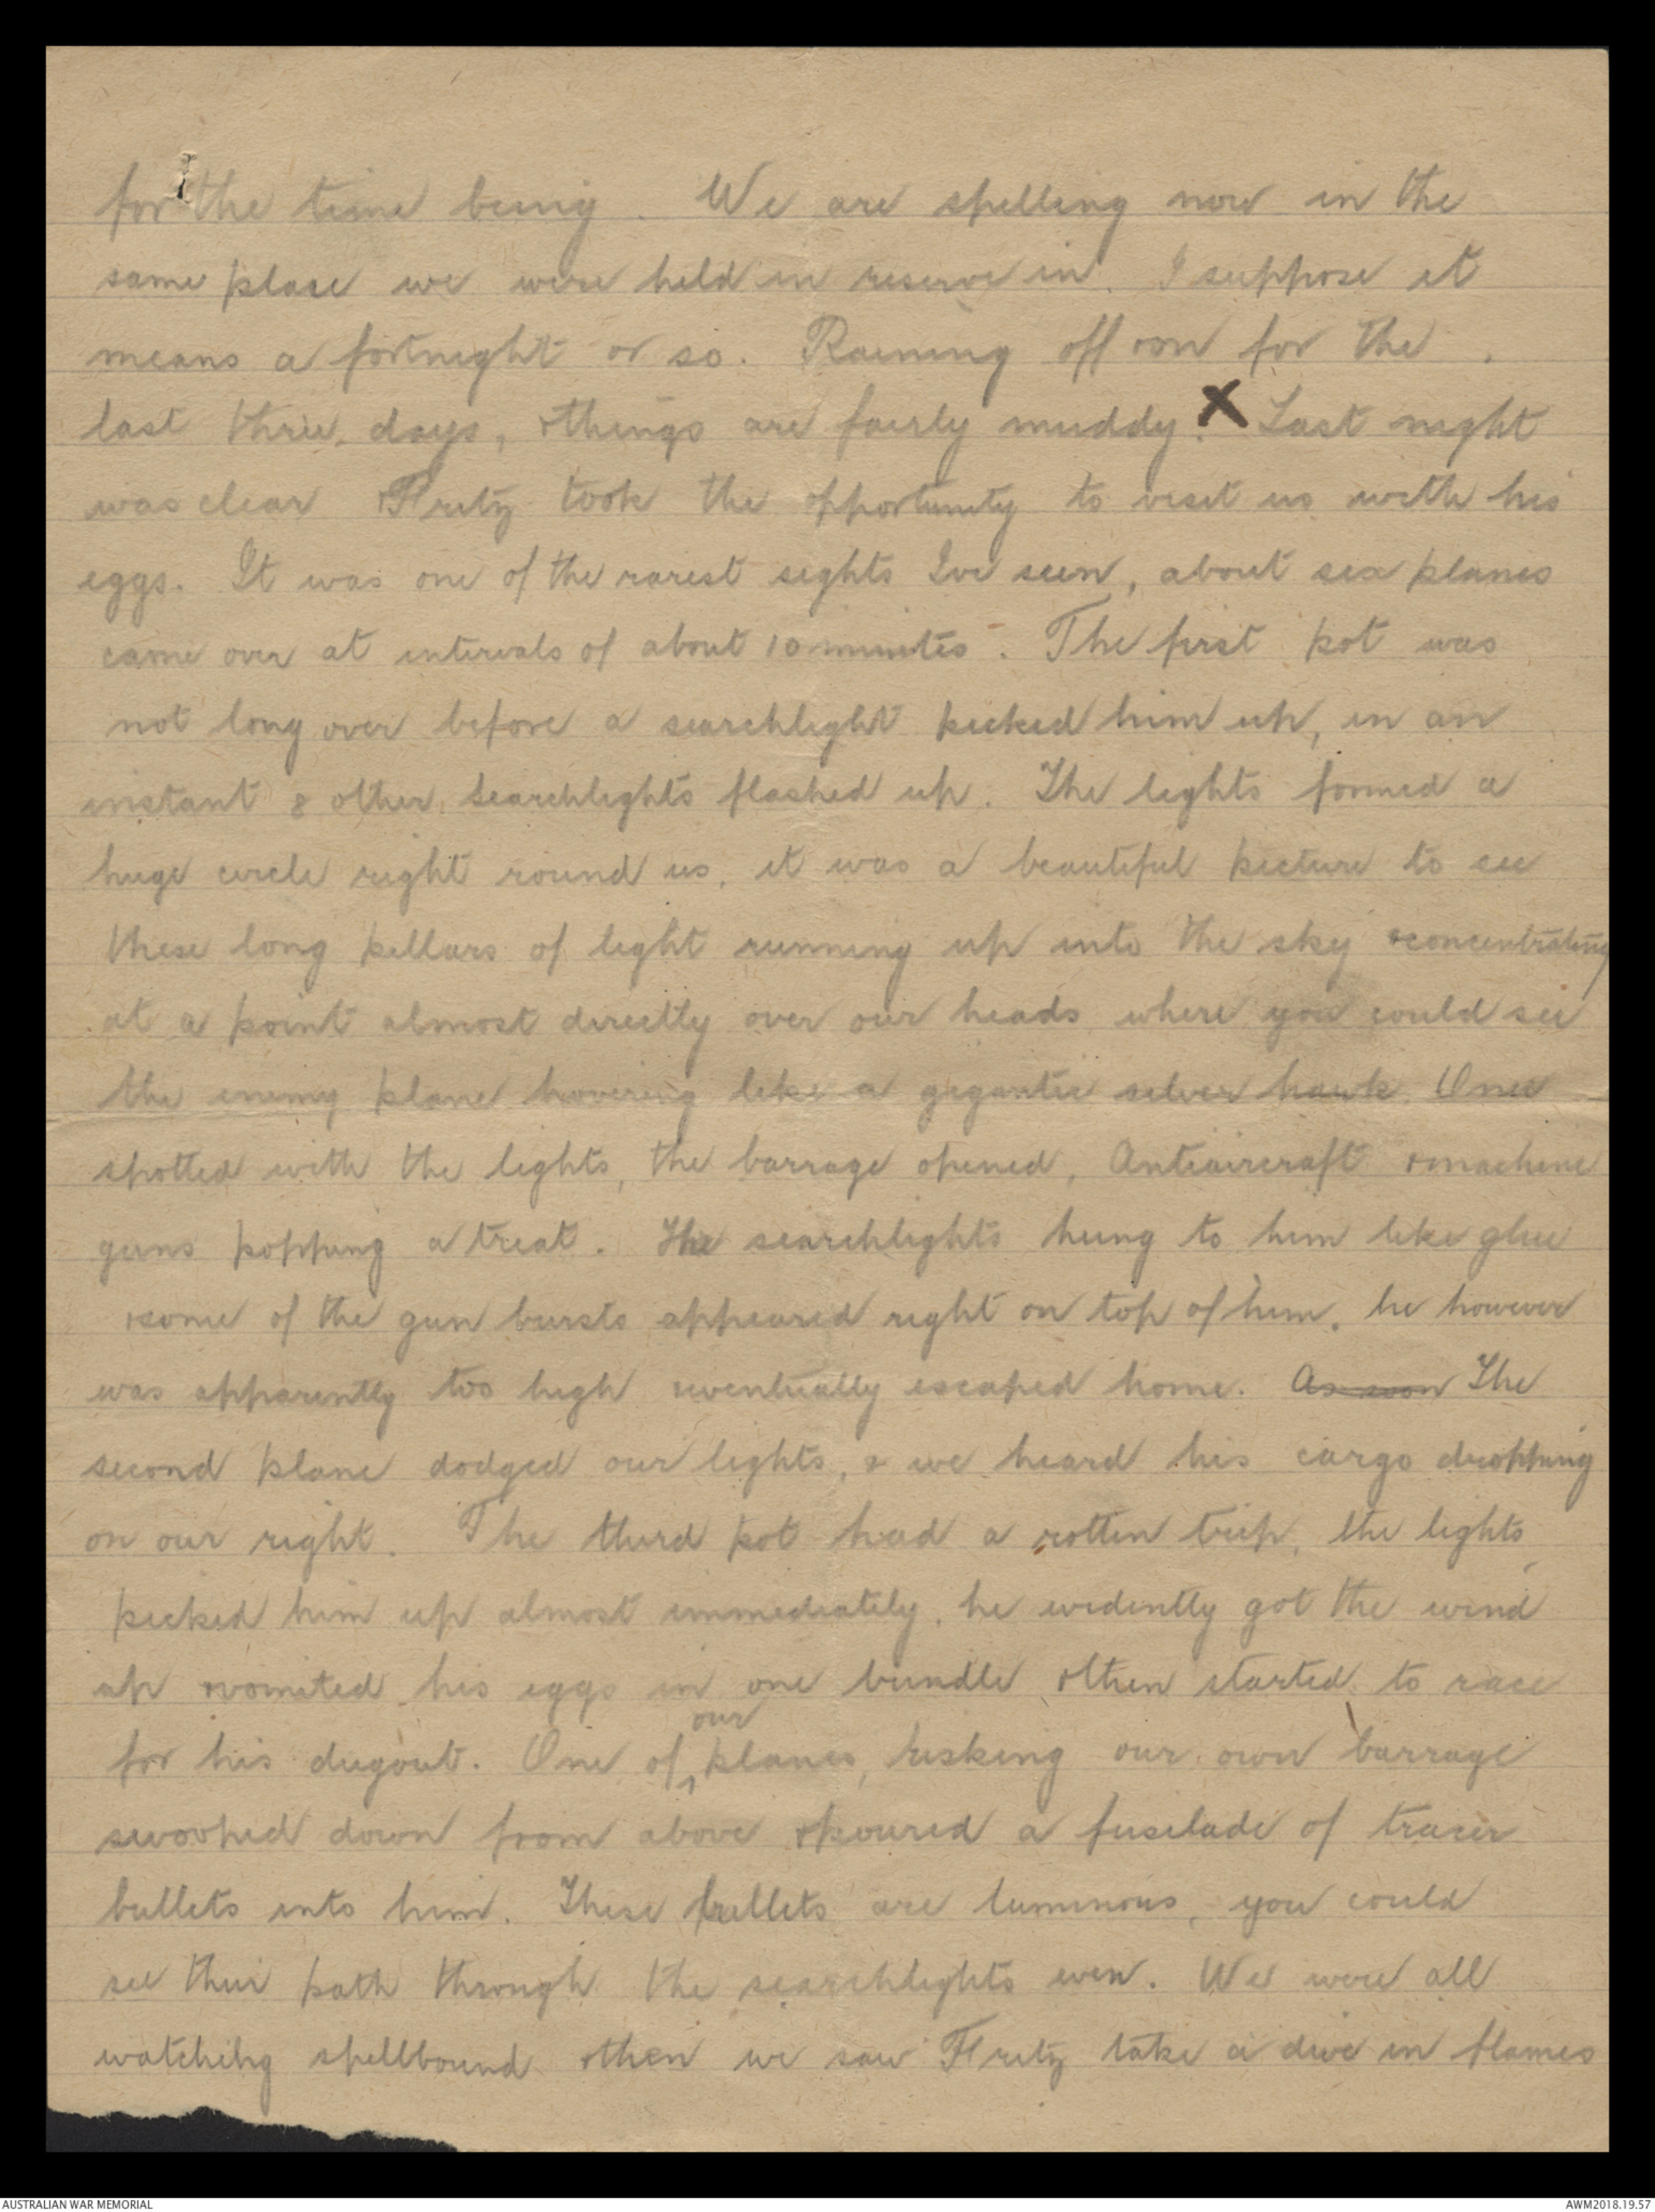 for the time being. We are spelling now in the
same place we were held in reserve in. I suppose it
means a fortnight or so. Raining off & on for the
last three days, & things are fairly muddy. X Last night
was clear & Fritz took the opportunity to visit us with his
eggs. It was one of the rarest sights Ive seen, about six planes
came over at intervals of about 10 minutes. The first pot was
not long over before a searchlight picked him up, in an
instant 8 other searchlights flashed up. The lights formed a
huge circle right round us, it was a beautiful picture to see
these long pillars of light running up into the sky & concentrating
at a point almost directly over our heads where you could see
the enemy plane hovering like a gigantic silver hawk. Once
spotted with the lights, the barrage opened, Antiaircraft & machine
guns popping a treat. The searchlights hung to him like glue
& some of the gun bursts appeared right on top of him, he however
was apparently too high & eventually escaped home. As soon The
second plane dodged our lights, & we heard his cargo dropping
on our right. The third pot had a rotten trip, the lights
picked him up almost immediately, he evidently got the wind
up & vomited his eggs in one bundle & then started to race
for his dugout. One of our planes, risking our own barrage
swooped down from above & poured a fusilade of tracer
bullets into him. These bullets are luminous, you could
see their path through the searchlights even. We were all
watching spellbound & then we saw Fritz take a dive in flames
AUSTRALIAN WAR MEMORIAL
AWM2018.19.57